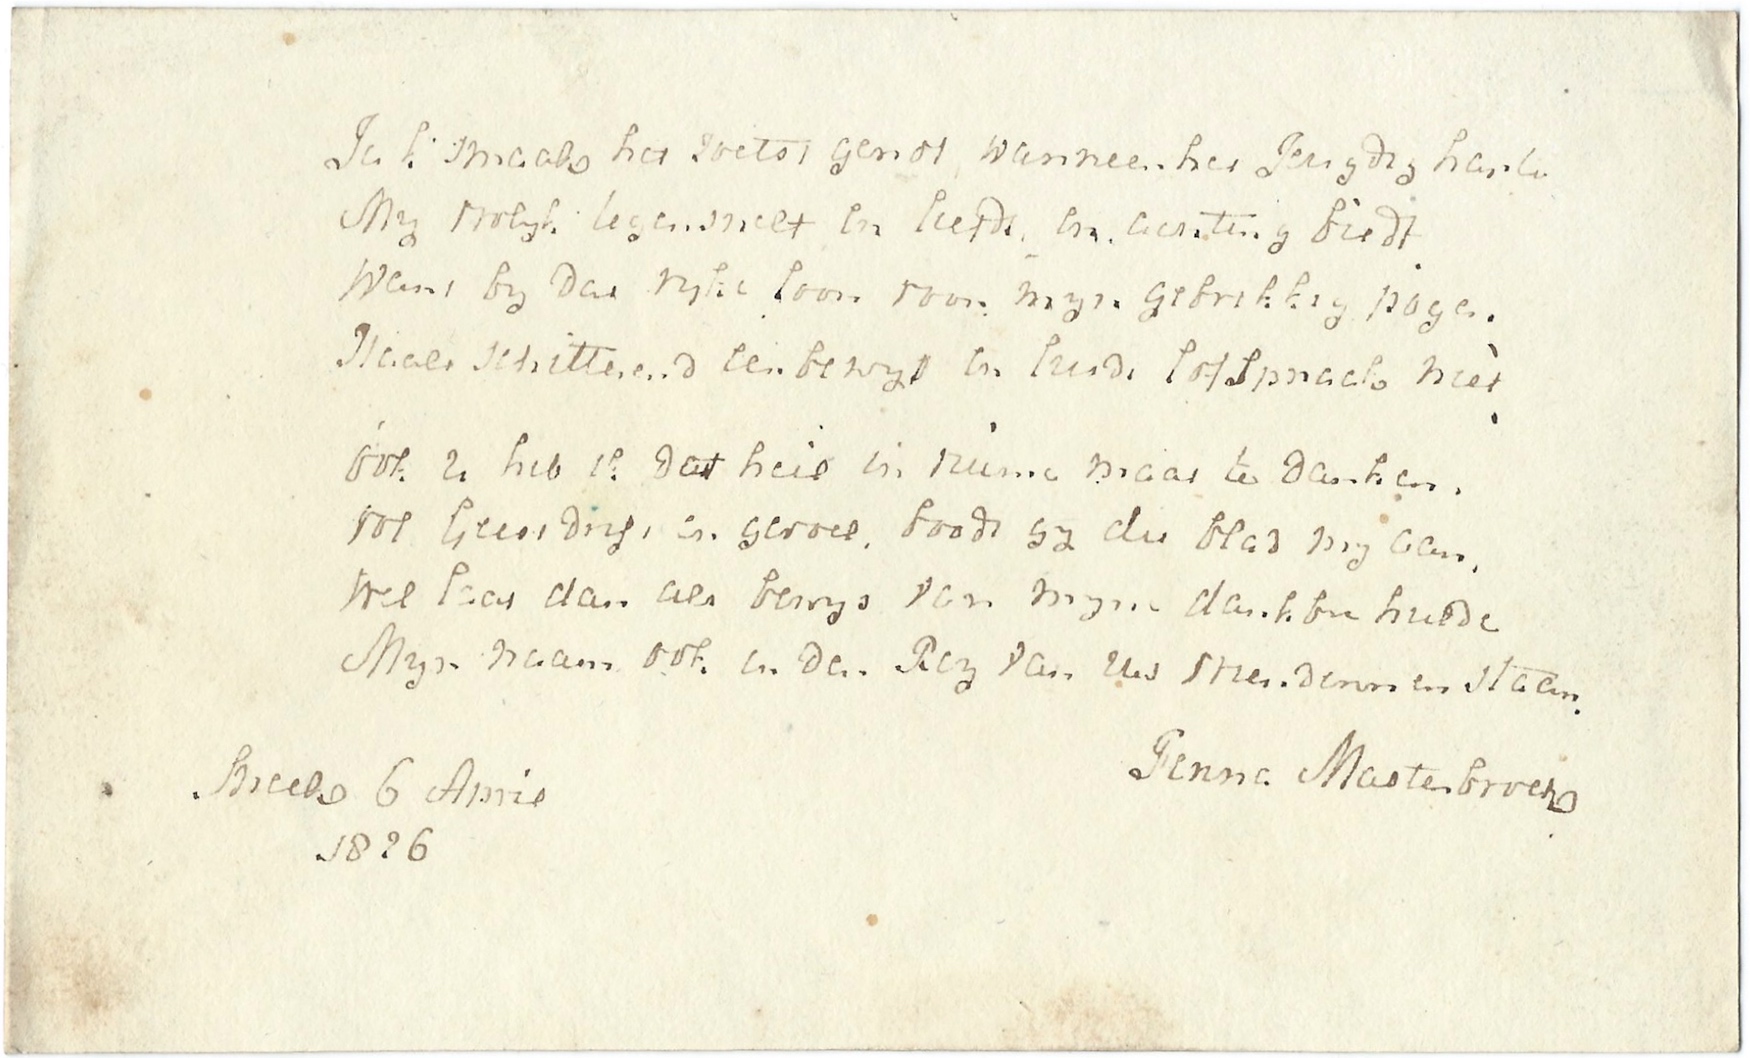 Ja k' smaak het zoetst genot, wanneer het Jeugdig harte
My vrolyk tegensnelt en liefde, en achting biedt
Want by dat ryke loon voor myn gebrekkig pogen.
Haalt schitterend eerbewys en luide lofspraak niet
ook u heb ik dat heil in ruime maat te danken.
vol Geestdrift en gevoel, boodt gy dit blad my aan,
Wel laat dan als bewys van myne dankbre hulde
Myn naam ook in den Rey van Uw vriendinnen staan.
Fenna Mastenbroek
Sneek 6 April
1826